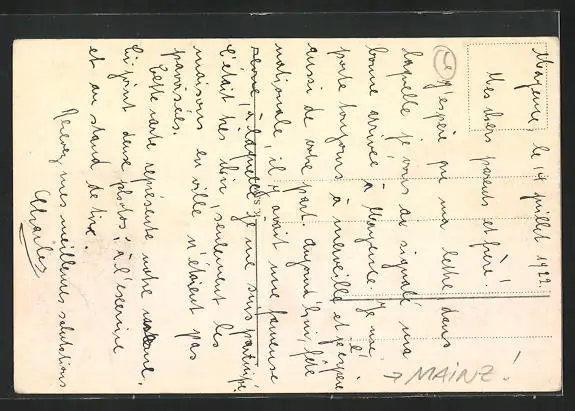 Mayence, le 14 juillet 1922.
Mes chers parents et frère!
J'espère que ma lettre dans
laquelle je vous ai signalé ma
bonne arrivée à Mayence. Je me
porte toujours à merveille et j'espère
aussi de votre part. Aujourd'hui, fête
nationale, il y avait une fameuse
revue, à laquelle je me suis participé
C'était très bien seulement les
maisons en ville n'étaient pas
pavoisées.
Cette carte représente notre caserne,
Ci-joint deux photos: à l'exercice
et au stand de tire.
Recevez mes meilleures salutations
Charles
→ MAINZ!